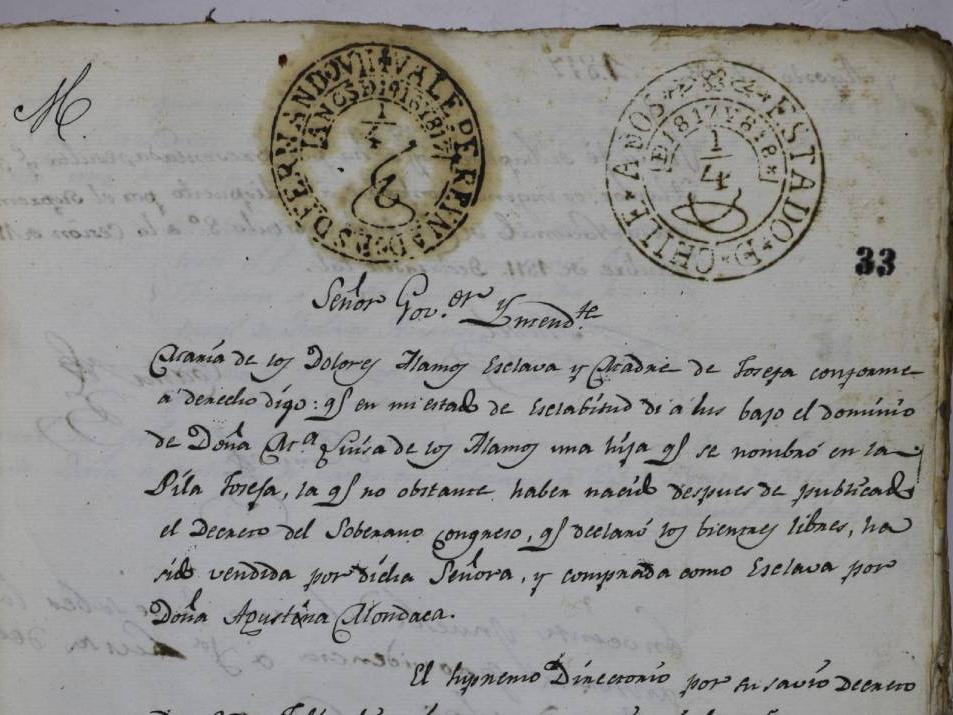 M.
VALE PE REYNADO D S.M.D. FERNANDO VII
AÑOS D 1816 Y 1817
1/4
ESTADO D CHILE AÑOS
D 1817 Y 818
1/4
33
Señor Gov.or Yntend.te
María de los Dolores Alamos Esclava y Madre de Josefa conforme
a derecho digo: q.e en mi estado de Esclabitud di a lus bajo el dominio
de Doña M.a Luisa de los Alamos una hija q.e se nombró en la
Pila Josefa, la q.e no obstante haber nacido despues de publicado
el Decreto del Soberano Congreso, q.e declaró los bientres libres, ha
sido vendida por dicha Señora, y comprada como Esclava por
Doña Agustina Mondaca.
El supremo Directorio por su savio Decreto